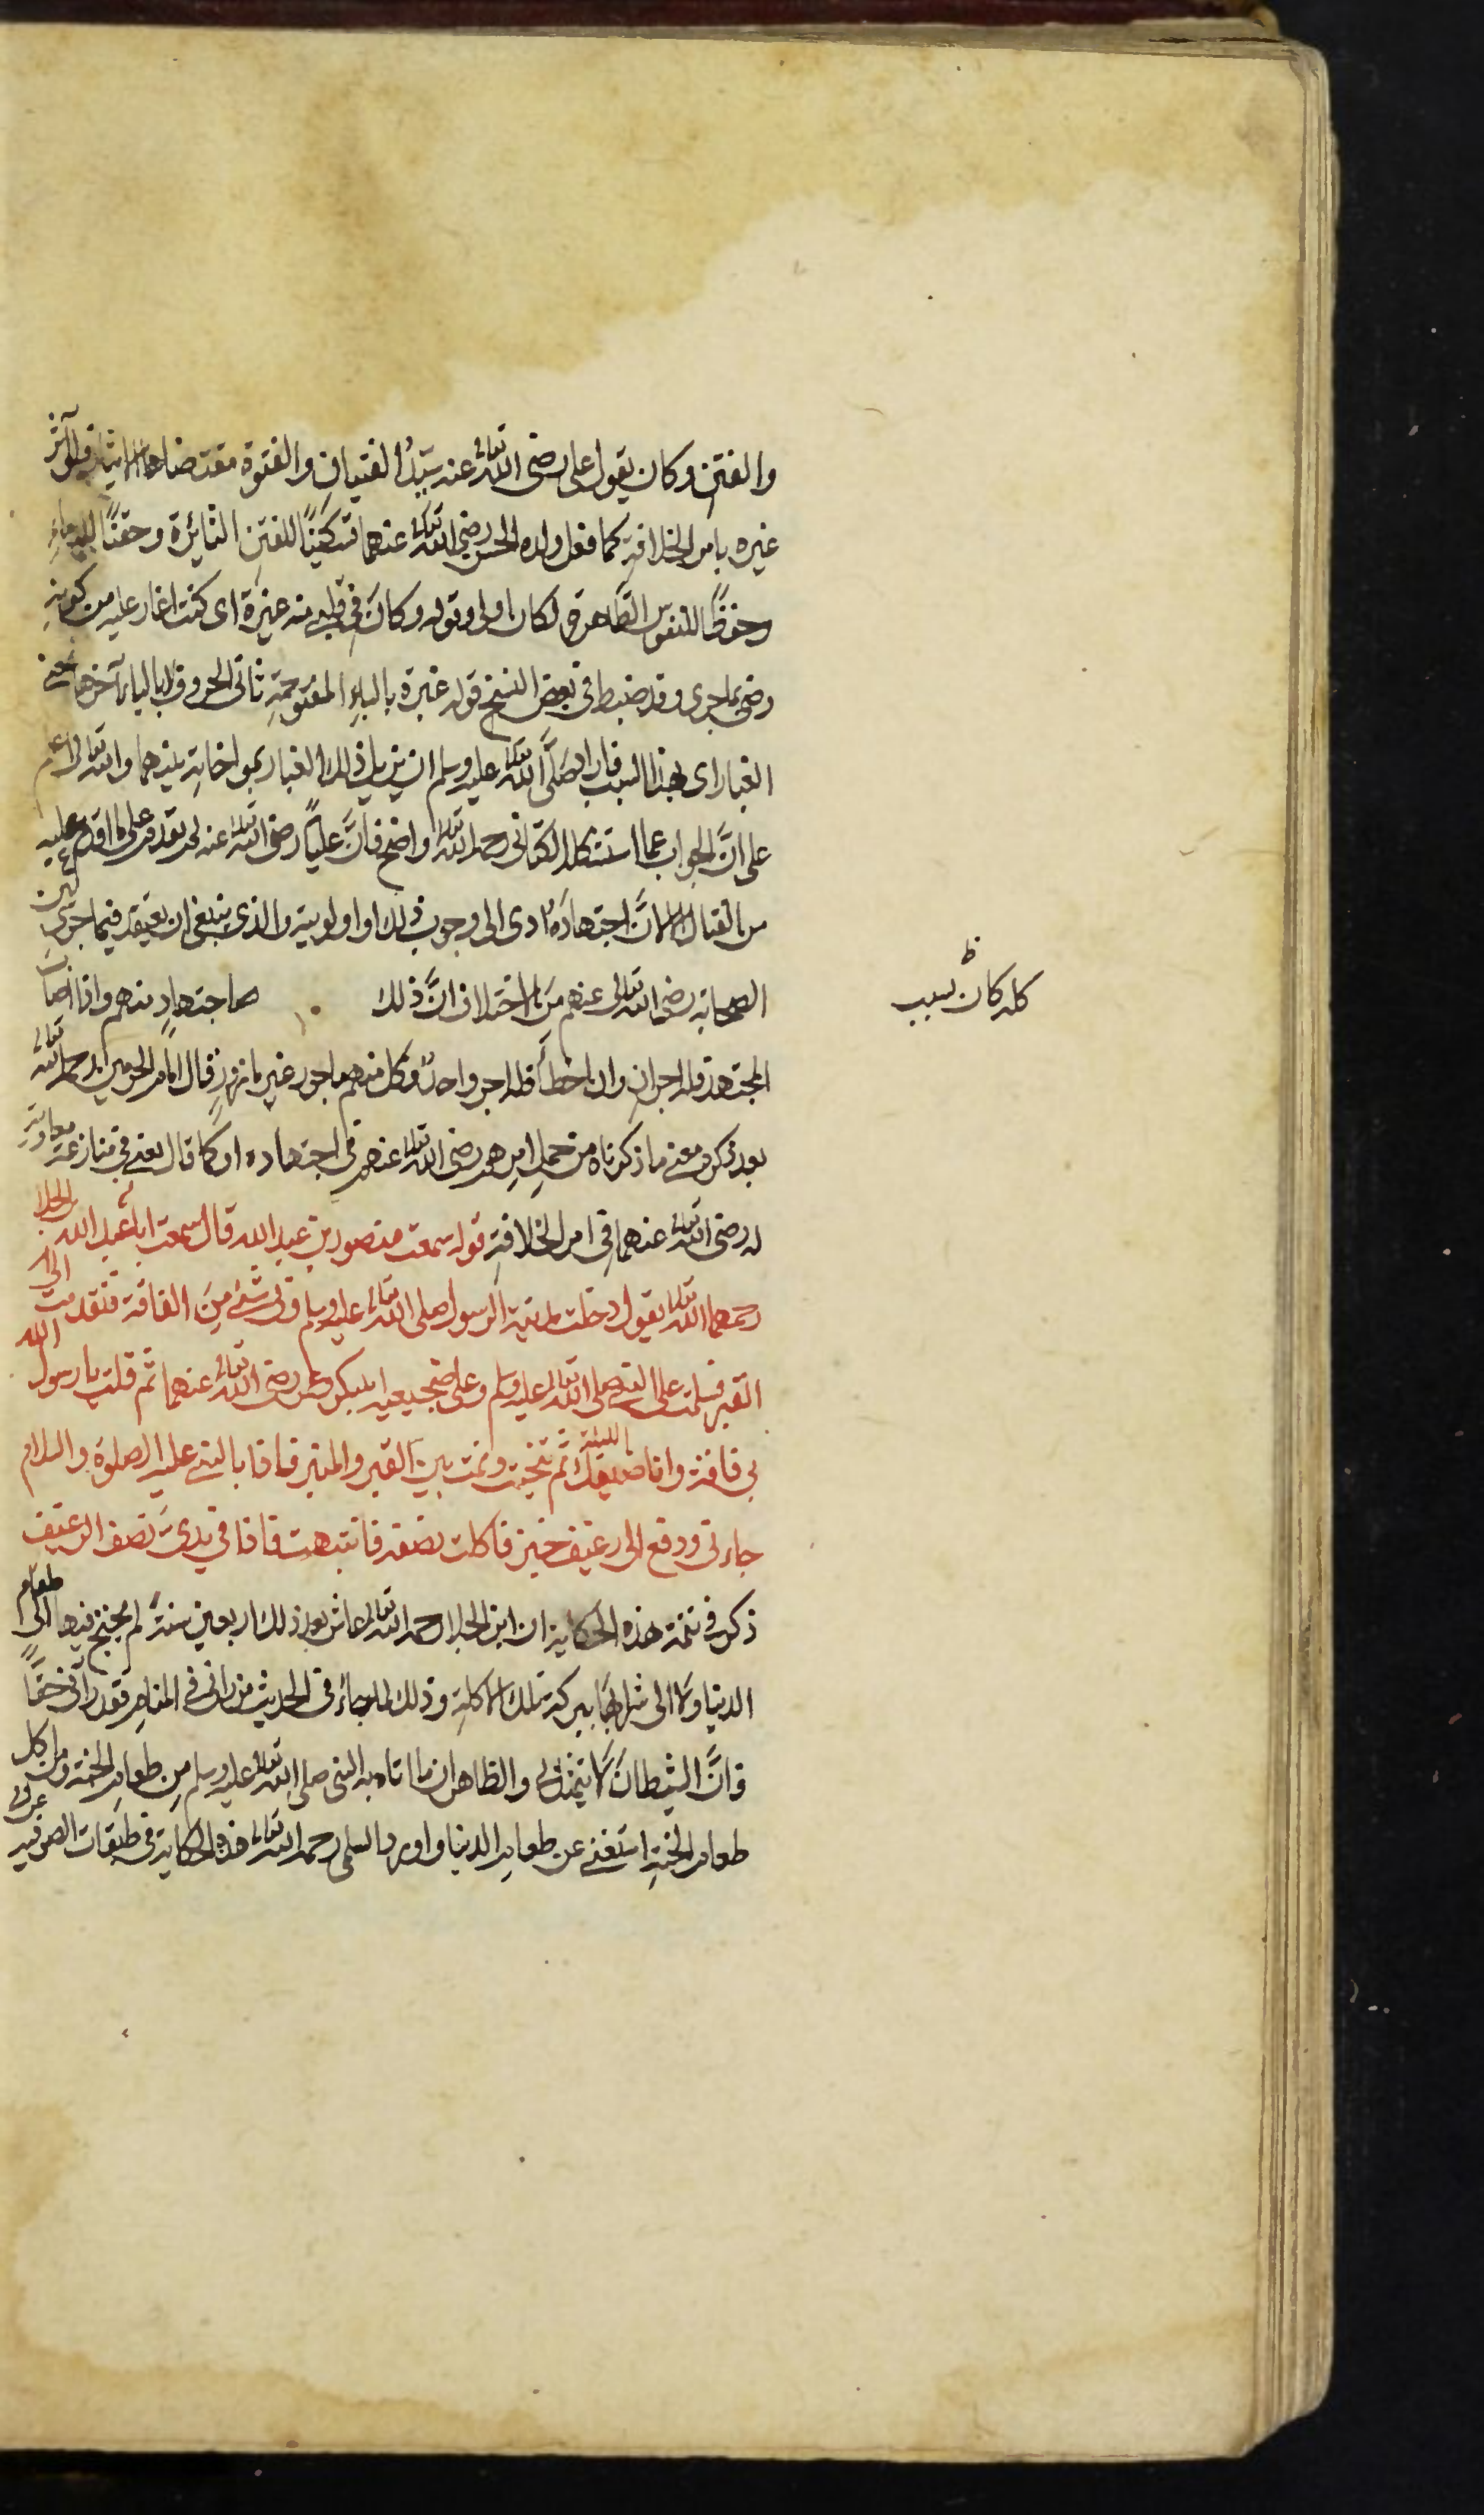 والفتن وكان يقول على رضى الله تعالى عنه سيّدُ الفتيان والفتوة مقتضاها الايثار فلو آثر
غيره بامر الخلافةِ كما فعل ولده الحسن رضي الله تعالى عنهما تسكينًا للفتن الثائرة وحقنًا للدماءِ
وحفظًا للنفوس الطاهرة لكان اولى وقوله وكانَ في قلبي منه غيرة اى كنت اغار عليه من كونهِ
رضى بما جرى وقد ضبط في بعض النسخ قوله غبرة بالباءِ المفتوحةِ ثانى الحروف لا بالياء آخرها يعنى
الغبار اى بهذا السبب فاراد صلَّى الله تعالى عليه وسلم ان يزيل ذلك الغبار بمواخاتِه بينهما والله تعالى اعلم
على انَّ الجواب عما استشكله الكتانى رحمه الله تعالى واضح فانَّ عليًّا رضى الله تعالى عنه لم يقدم على ما اقدم عليه
من القتال الا لانَّ اجتهادَهُ ادى الى وجوب ذلك او اولويته والذى ينبغى ان يعتقد فيما جرى بين
الصحابة رضى الله تعالى عنهم مِنَ الاختلاف انَّ ذلك صا جتهادٍ منهم واذا اصابَ
كله كان بسبب ظ
المجتهد فله اجران وان اخطأ فله اجر واحدٌ وكل منهم ماجور غير مازورٍ قال امام الحرمين رحمه الله تعالى
بعد ذكره معنى ما ذكرناه من حملِ امرهم رضى الله تعالى عنهم في اجتهاده او كما قال يعنى في منازعة معاوية
له رضى الله تعالى عنهما في امر الخلافةِ قوله سمعت منصور بن عبد الله قال سمعت ابا عبد الله بن الجلا
رحمهما الله تعالى يقول دخلت مدينة الرسول صلى الله تعالى عليه وسلم وبى شئ مِنَ الفاقة فتقدمت الى
القبر فسلمت على النبى صلى الله تعالى عليه وسلم وعلى ضجيعيه ابى بكر وعمر رضى الله تعالى عنهما ثم قلت يا رسول الله
بى فاقة وانا ضيفك الليلة ثم تنحيت ونمت بين القبر والمنبر فاذا بالنبى عليه الصلوة والسلام
جاءنى ودفع الى رغيف خبز فاكلت نصفه فانتبهت فاذا في يدىَّ نصف الرغيف
ذكر في تتمة هذه الحكاية ان ابن الجلا رحمه الله تعالى عاش بعد ذلك اربعين سنةً لم يحتج فيها الى طعام
الدنيا ولا الى شرابها ببركة تلك الاكلةِ وذلك لما جاءَ في الحديث من رانى في المنام فقد رآنى حقًّا
فانَّ الشيطانَ لا يتمثل بى والظاهر ان ما اتاه به النبى صلى الله تعالى عليه وسلم من طعام الجنة ومن اكل
طعام الجنةِ استغنى عن طعام الدنيا واورد السلمى رحمه الله تعالى هذه الحكاية في طبقات الصوفيه